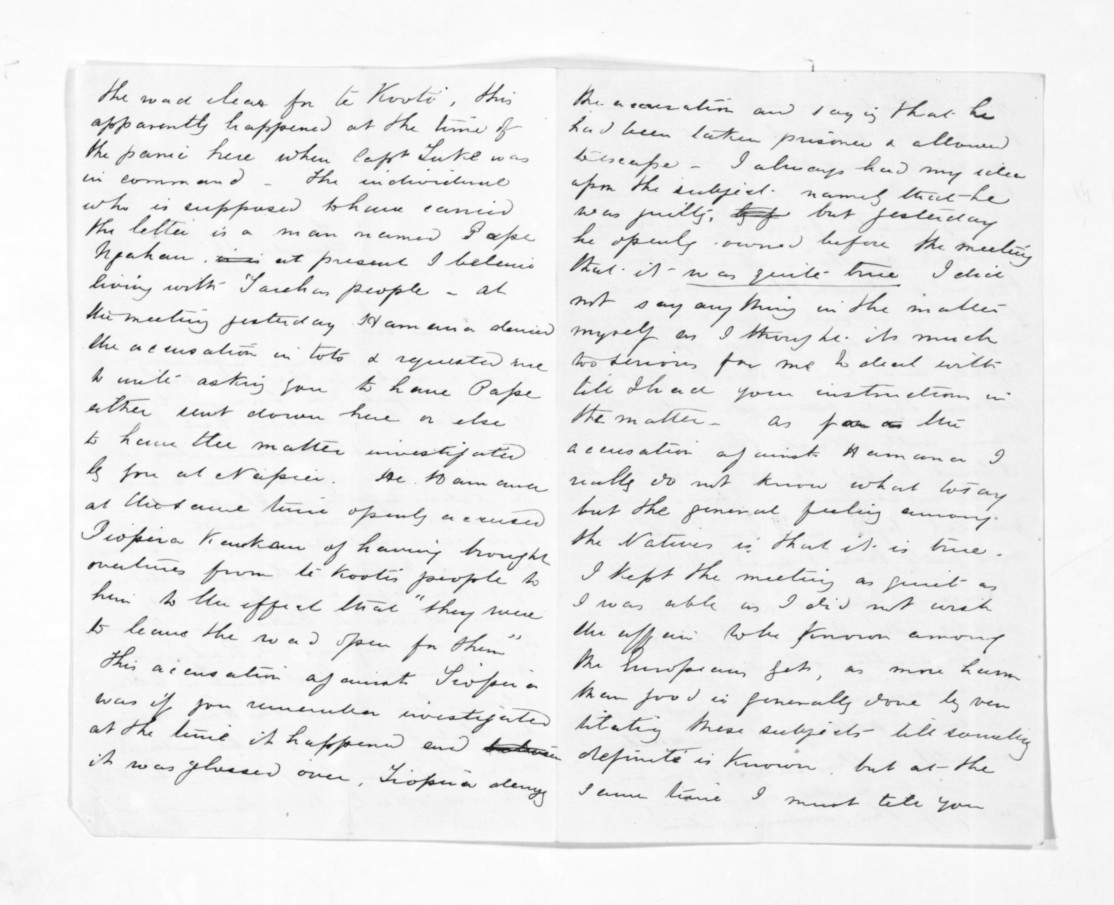 the road clear for te Kooti, this
apparently happened at the time of
the panic here when Capt Tuke was
in command – The individual
who is supposed to have carried
the letter is a man named Pape
Ngahau. at present I believe
living with Tarehas people – at
the meeting yesterday Hamana denied
the accusation in toto & requested me
to write asking you to have Pape
either sent down here or else
to have the matter investigated
by you at Napier. He Hamana
at the same time openly accused
Tiopira Kaukau of having brought
overtures from te Kooti's people to
him to the effect that "they were
to leave the road open for them"
This accusation against Tiopira
was if you remember investigated
at the time it happened and
it was glossed over, Tiopira denyg
the accusation and sayig that he
had been taken prisoner & allowed
to escape – I always had my idea
upon the subject. namely that he
was guilty, but yesterday
he openly owned before the meeting
that it was quite true I did
not say anything in the matter
myself as I thought its much
too serious for me to deal with
till I had your instructions in
the matter – as for the
accusation against Hamana I
really do not know what to say
but the general feeling among
the Natives is that it is true.
I kept the meeting as quiet as
I was able as I did not wish
the affair to be known among
the Europeans yet, as more harm
than good is generally done by ven
tilating these subjects till something
definite is known. but at the
same time I must tell you